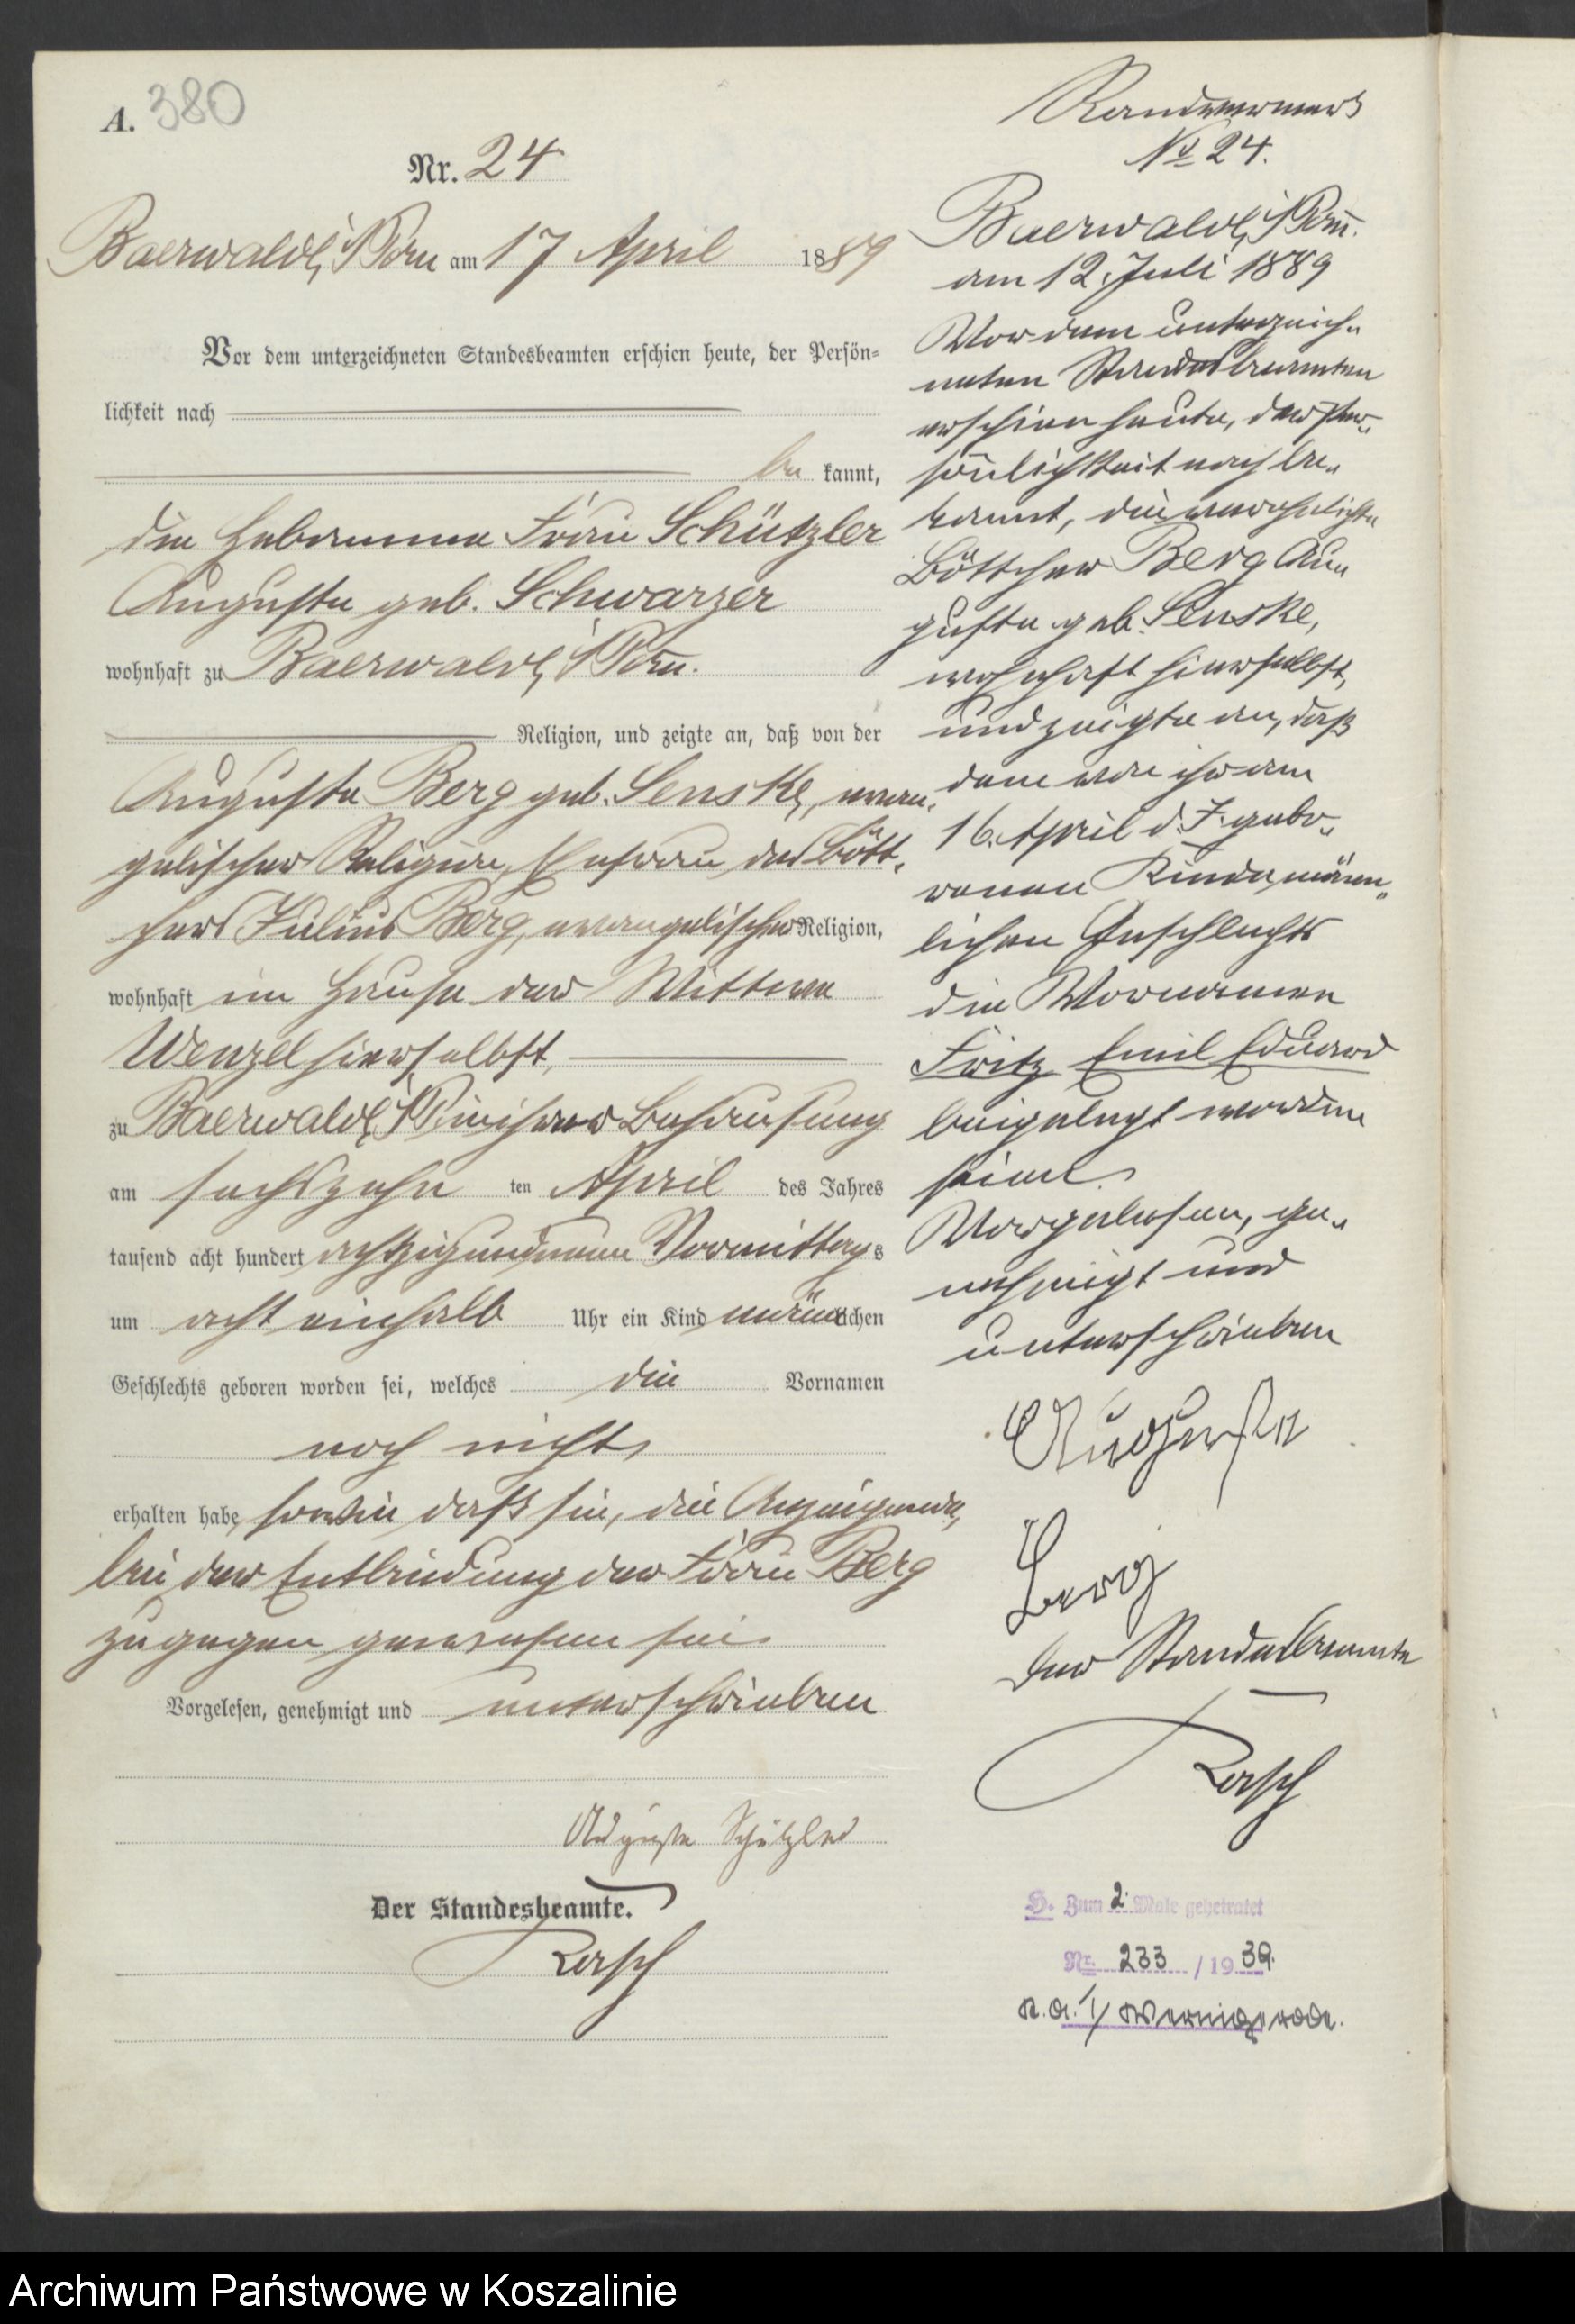 A. 380
Nr. 24
Baerwalde i/Pom am 17 April 1889
Vor dem unterzeichneten Standesbeamten erschien heute, der Persön=
lichkeit nach
be kannt,
die Hebamme Frau Schützler
Auguste geb. Schwarzer
wohnhaft zu Baerwalde i/Pom.
Religion, und zeigte an, daß von der
Auguste Berg geb. Senske, evan„
gelischer Religion, Ehefrau des Bött„
chers Julius Berg, evangelischer Religion,
wohnhaft im Hause der Wittwe
Wenzel hierselbst,
zu Baerwalde i/P in ihrer Behausung
am sechszehn ten April des Jahres
tausend acht hundert achtzigundneun Vormittags
um acht einhalb Uhr ein Kind männlichen
Geschlechts geboren worden sei, welches die Vornamen
noch nicht
erhalten habe, sowie daß sie, die Anzeigende,
bei der Entbindung der Frau Berg
zugegen gewesen sei.
Vorgelesen, genehmigt und unterschrieben
Auguste Schützler
Der Standesbeamte.
Rasch
Randvermerk
No 24.
Baerwalde i/Pom.
am 12. Juli 1889
Vor dem unterzeich„
neten Standesbeamten
erschien heute, der Per„
sönlichkeit nach be„
kannt, die verehelichte
Böttcher Berg Au„
guste geb. Senske,
wohnhaft hierselbst,
und zeigte an, daß
dem von ihr am
16. April d. J. gebo„
renen Kinde männ„
lichen Geschlechts
die Vornamen
Fritz Emil Eduard
beigelegt worden
seien.
Vorgelesen, ge„
nehmigt und
unterschrieben
Auguste
Berg
Der Standesbeamte
Rasch
H. Zum 2. Male geheiratet
Nr. 233 / 19 39.
St. A. I/ Wernigerode.
Archiwum Państwowe w Koszalinie